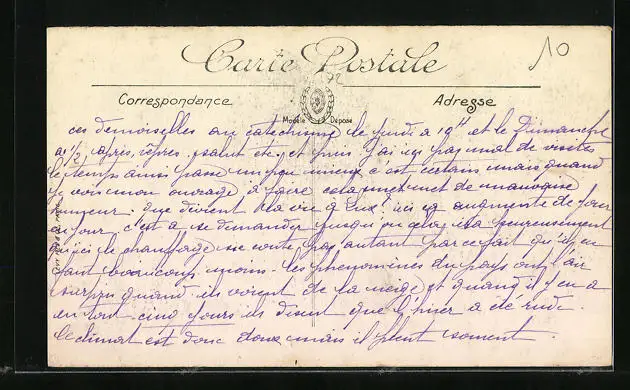 10
Carte Postale
72
Correspondance Adresse
Modèle Déposé
ces demoiselles au catéchisme le jeudi à 10H et le Dimanche
a 1/2 après, vêpres, salut etc, et puis j'ai ici pas mal de visites
le temps ainsi passe un peu mieux, c'est certain mais quand
je vois mon ouvrage à faire cela me met de mauvaise
humeur. Que devient la vie à ici ça augmente de jour
en jour c'est à se demander jusqu'où cela ira heureusement
qu'ici le chauffage ne coûte pas autant par ce fait qu'il en
faut beaucoup moins. les du pays ont l'air
surpris quand ils voient de la neige et quand il y en a
en tout cinq jours ils disent que l'hiver a été rude.
le climat est donc doux mais il pleut souvent.